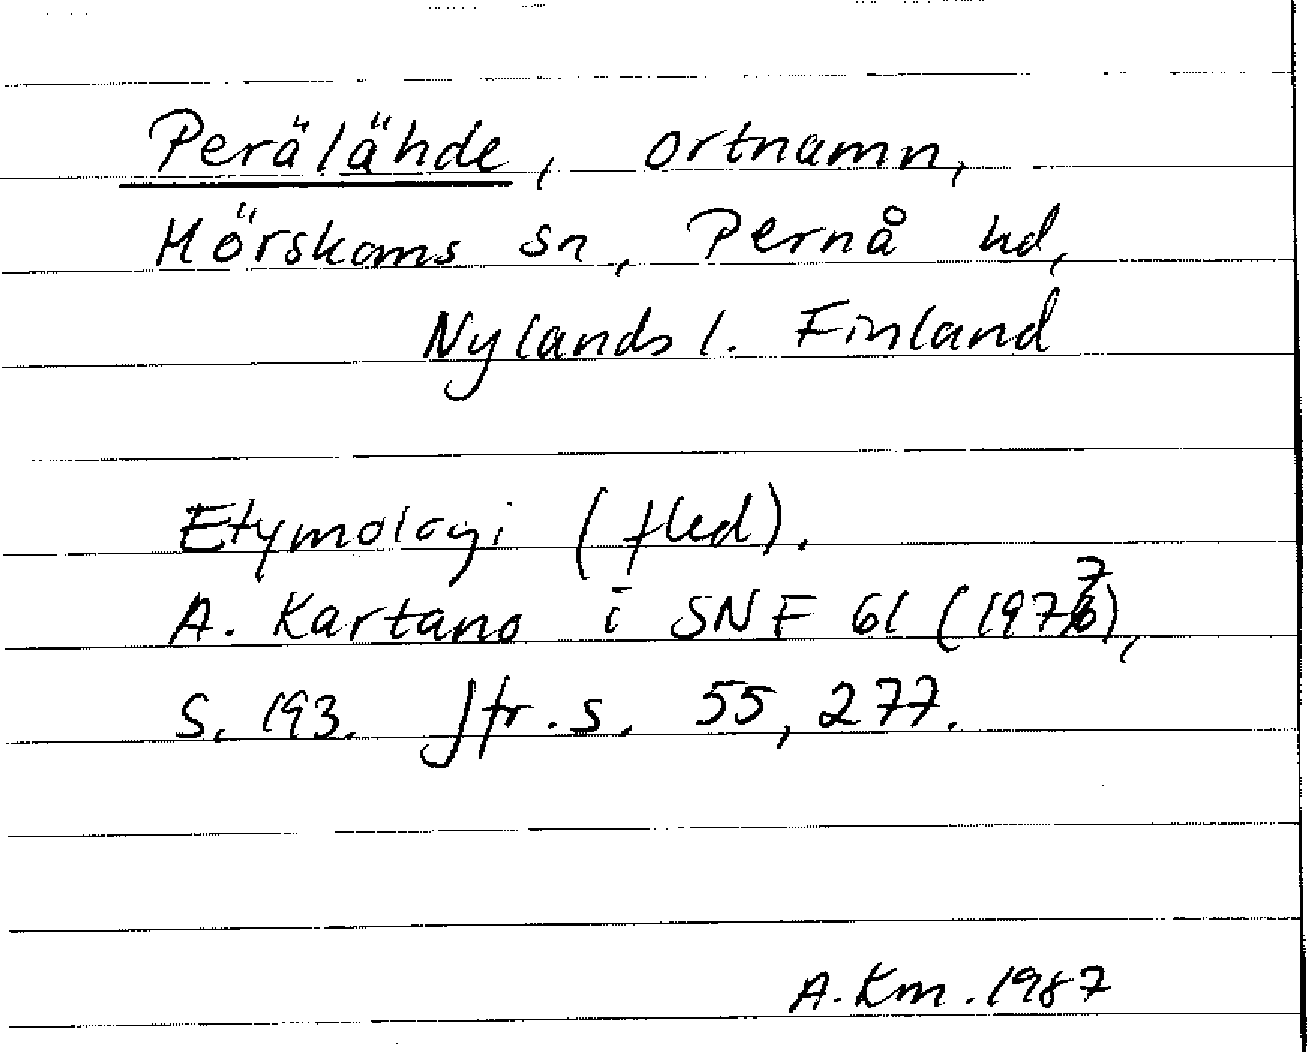 Perälähde, ortnamn,
Mörskoms sn, Pernå hd,
Nylands l. Finland
Etymologi (fled).
A. Kartano i SNF 61 (1977),
S. 193. Jfr. s. 55, 277.
A. Km. 1987